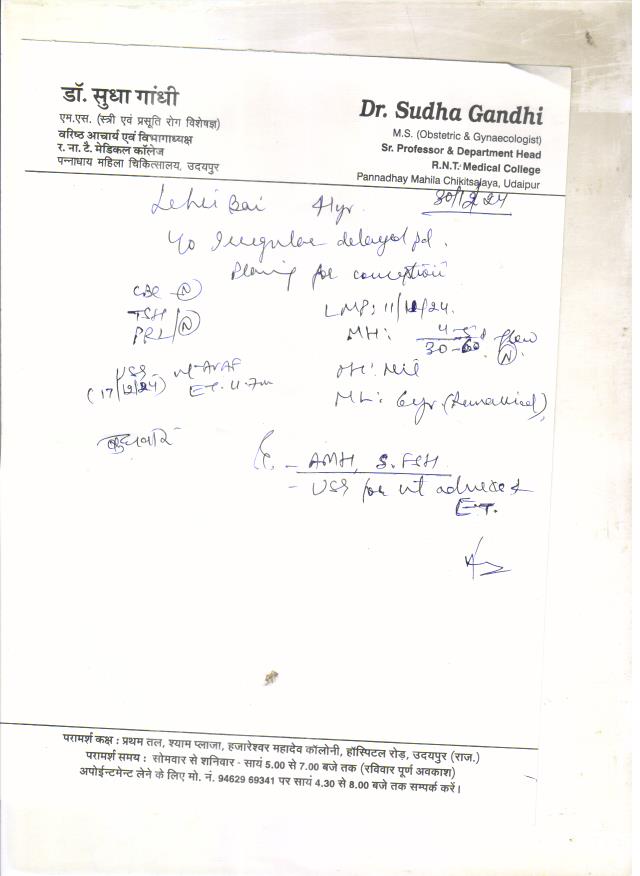 डॉ. सुधा गांधी
एम.एस. (स्त्री एवं प्रसूति रोग विशेषज्ञ)
वरिष्ठ आचार्य एवं विभागाध्यक्ष
र. ना. टै. मेडिकल कॉलेज
पन्नाधाय महिला चिकित्सालय, उदयपुर
Dr. Sudha Gandhi
M.S. (Obstetric & Gynaecologist)
Sr. Professor & Department Head
R.N.T. Medical College
Pannadhay Mahila Chikitsalaya, Udaipur
Bai 41yr. 30/12/24
Irregular delayed pd.
Planning for conception
CBC - (N)
TSH
PRL/(N)
LMP: 11/12/24.
MH: 4-5d flow
30-60 (N).
USG -
(17/12/24) ET. 11.7m
OH: Nil
ML: 6yr. (Remarried)
बुधवार
- AMH, S. FSH
- USG for ut adnexa &
ET.
परामर्श कक्ष : प्रथम तल, श्याम प्लाजा, हजारेश्वर महादेव कॉलोनी, हॉस्पिटल रोड़, उदयपुर (राज.)
परामर्श समय : सोमवार से शनिवार - सायं 5.00 से 7.00 बजे तक (रविवार पूर्ण अवकाश)
अपोईन्टमेन्ट लेने के लिए मो. नं. 94629 69341 पर सायं 4.30 से 8.00 बजे तक सम्पर्क करें।